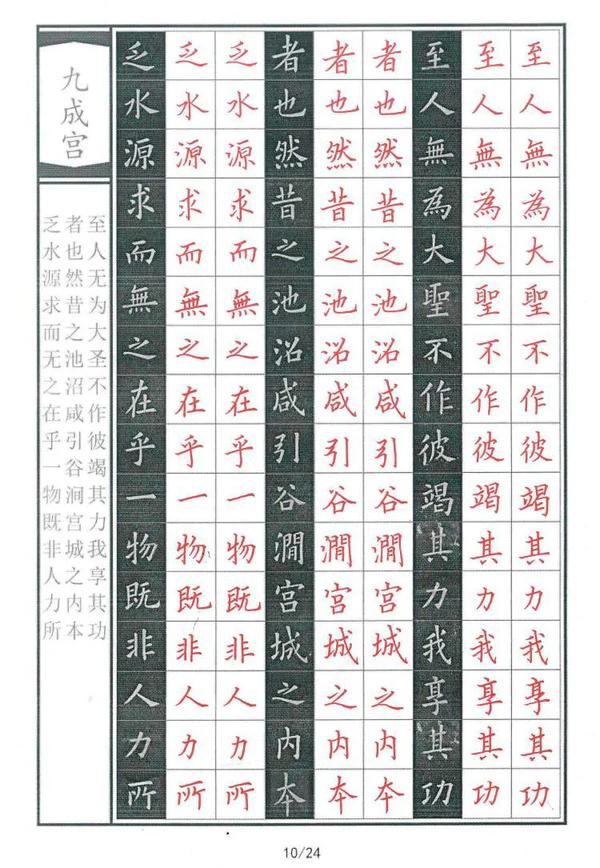 至人無為大聖不作彼竭其力我享其功
至人無為大聖不作彼竭其力我享其功
至人無為大聖不作彼竭其力我享其功
者也然昔之池沼咸引谷澗宮城之内本
者也然昔之池沼咸引谷澗宮城之内本
者也然昔之池沼咸引谷澗宮城之内本
乏水源求而無之在乎一物既非人力所
乏水源求而無之在乎一物既非人力所
乏水源求而無之在乎一物既非人力所
九成宫
至人无为大圣不作彼竭其力我享其功
者也然昔之池沼咸引谷涧宫城之内本
乏水源求而无之在乎一物既非人力所
10/24